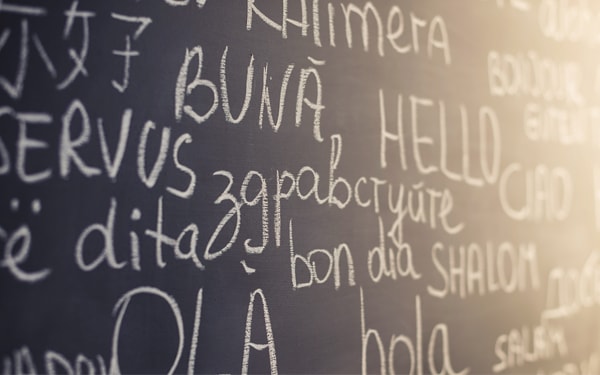 KAlimerA
BUNĂ
BONJOUR
HELLO
SERVUS
CIAO
здравствуйте
dita
bon dia
SHALOM
OLÀ
hola
SALAM